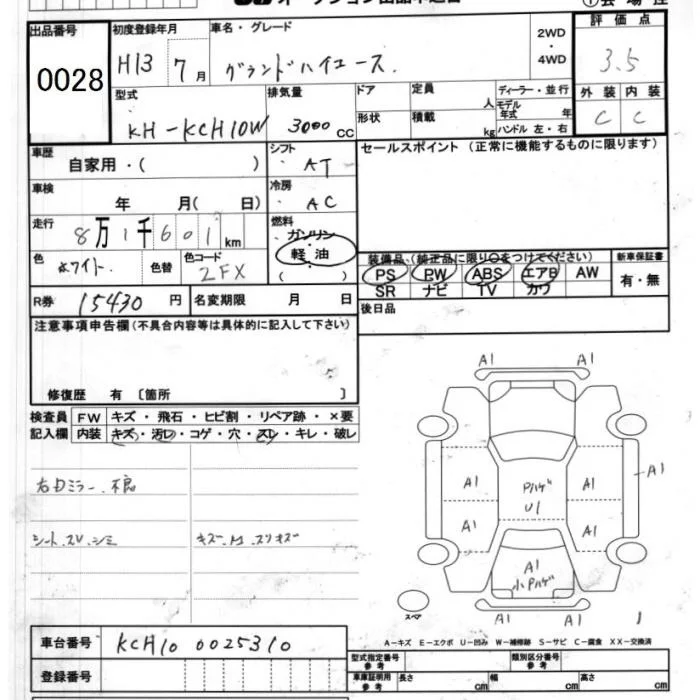 出品番号 0028
初度登録年月 H13 7月
車名・グレード グランドハイエース.
2WD・4WD
評価点 3.5
外装 C 内装 C
型式 KH-KCH10W
排気量 3000cc
ドア 形状
定員 人
積載 kg
ディーラー・並行
モデル年式 年
ハンドル 左・右
車歴 自家用・( )
シフト AT
セールスポイント(正常に機能するものに限ります)
車検 年 月( 日)
冷房 AC
走行 8万1千601km
燃料 ガソリン
軽油
( )
色 ホワイト. 色替
色コード 2FX
装備品(純正品に限り○をつけてください)
PS PW ABS エアB AW
SR ナビ TV カワ
新車保証書 有・無
R券 15430円
名変期限 月 日
後日品
注意事項申告欄(不具合内容等は具体的に記入して下さい)
修復歴 有〔箇所 〕
検査員記入欄
FW キズ・飛石・ヒビ割・リペア跡・×要
内装 キズ・汚レ・コゲ・穴・スレ・キレ・破レ
右Dミラー 不良
シート.スレ.シミ
A1 A1
A1 A1 A1
Pハゲ
U1
A1 A1
A1
小Pハゲ
A1 A1
スペア
A-キズ E-エクボ U-凹み W-補修跡 S-サビ C-腐食 XX-交換済
車台番号 KCH10 0025310
登録番号
型式指定番号 参考
類別区分番号 参考
車庫証明用 参考 長さ cm 幅 cm 高さ cm